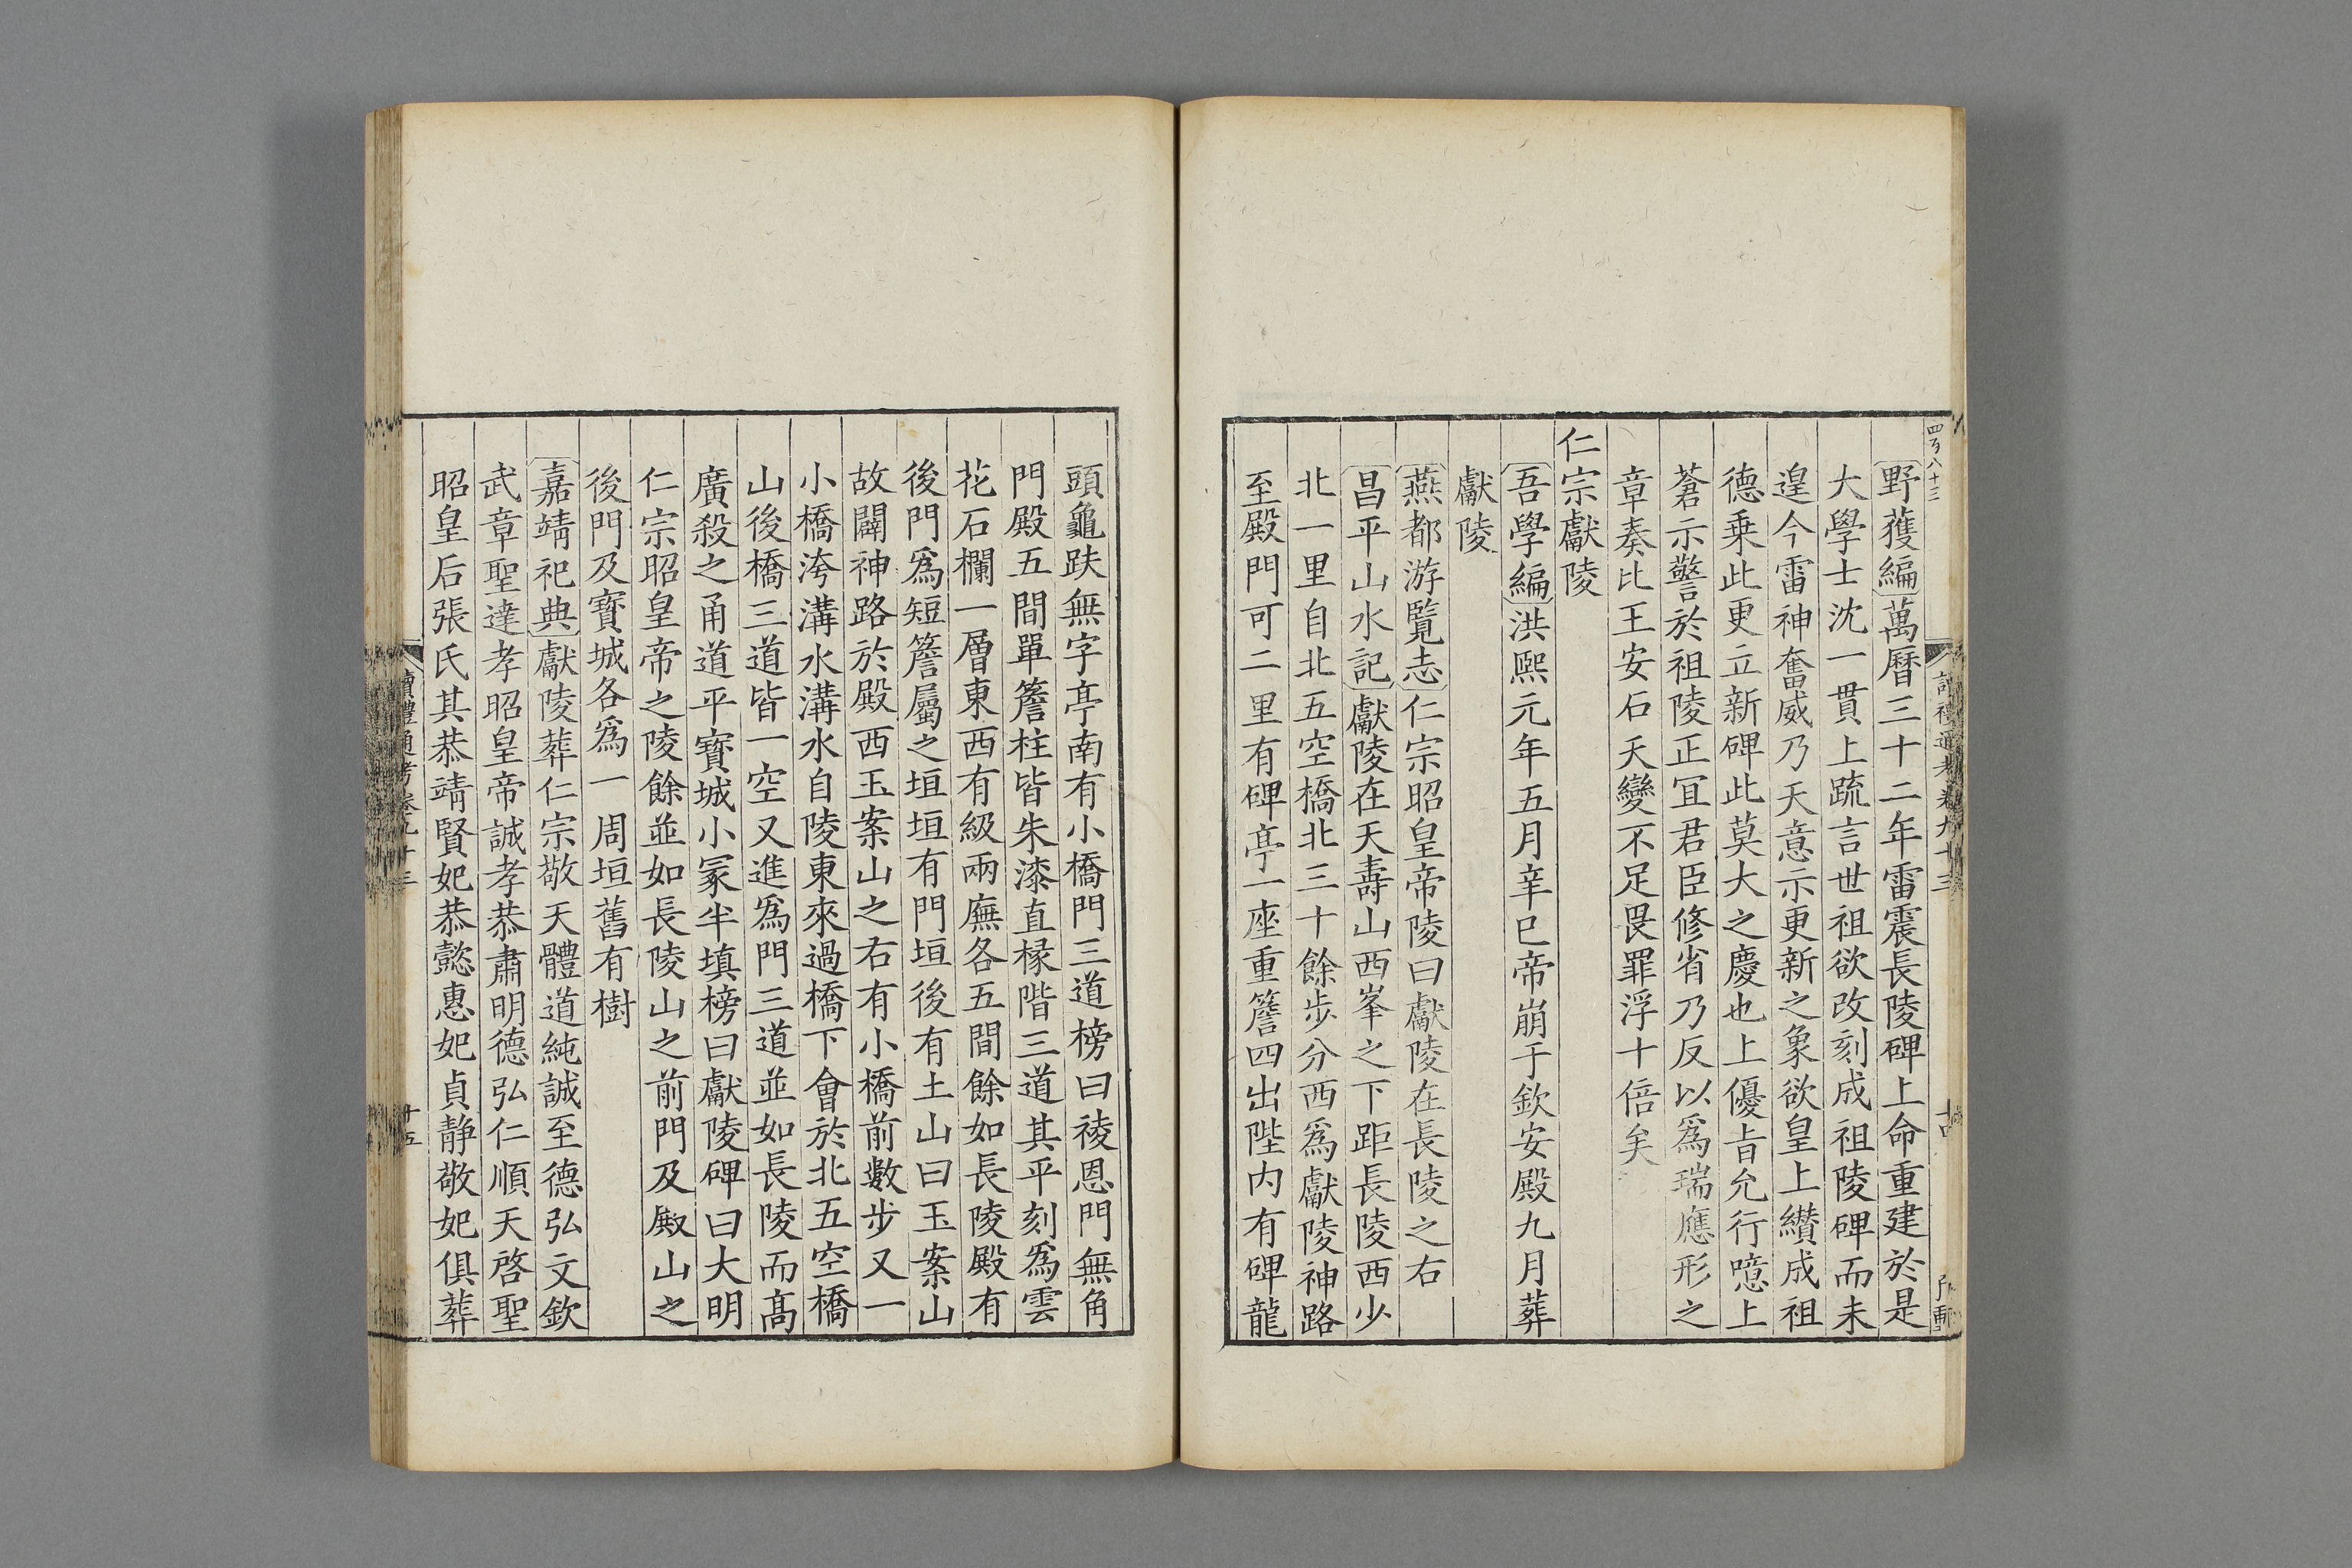 四百八十三
野獲編萬曆三十二年雷震長陵碑上命重建於是
大學士沈一貫上疏言世祖欲改刻成祖陵碑而未
遑今雷神奮威乃天意示更新之象欲皇上纘成祖
德乗此更立新碑此莫大之慶也上優旨允行噫上
蒼示警於祖陵正宜君臣修省乃反以爲瑞應形之
章奏比王安石天變不足畏罪浮十倍矣
仁宗獻陵
吾學編洪熙元年五月辛巳帝崩于欽安殿九月葬
獻陵
燕都游覽志仁宗昭皇帝陵曰獻陵在長陵之右
昌平山水記獻陵在天壽山西峯之下距長陵西少
北一里自北五空橋北三十餘步分西爲獻陵神路
至殿門可二里有碑亭一座重簷四出陛内有碑龍
頭龜趺無字亭南有小橋門三道榜曰祾恩門無角
門殿五間單簷柱皆朱漆直椽階三道其平刻爲雲
花石欄一層東西有級兩廡各五間餘如長陵殿有
後門爲短簷屬之垣垣有門垣後有土山曰玉案山
故闢神路於殿西玉案山之右有小橋前數步又一
小橋洿溝水溝水自陵東來過橋下會於北五空橋
山後橋三道皆一空又進爲門三道並如長陵而髙
廣殺之甬道平寳城小冢半填榜曰獻陵碑曰大明
仁宗昭皇帝之陵餘並如長陵山之前門及殿山之
後門及寳城各爲一周垣舊有樹
嘉靖祀典獻陵葬仁宗敬天體道純誠至德弘文欽
武章聖達孝昭皇帝誠孝恭肅明德弘仁順天啓聖
昭皇后張氏其恭靖賢妃恭懿惠妃貞静敬妃俱葬
讀禮通考卷九十三
十五